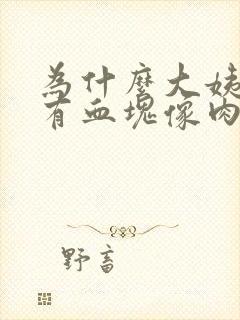 為什麼大姨
有血塊像肉
野畜